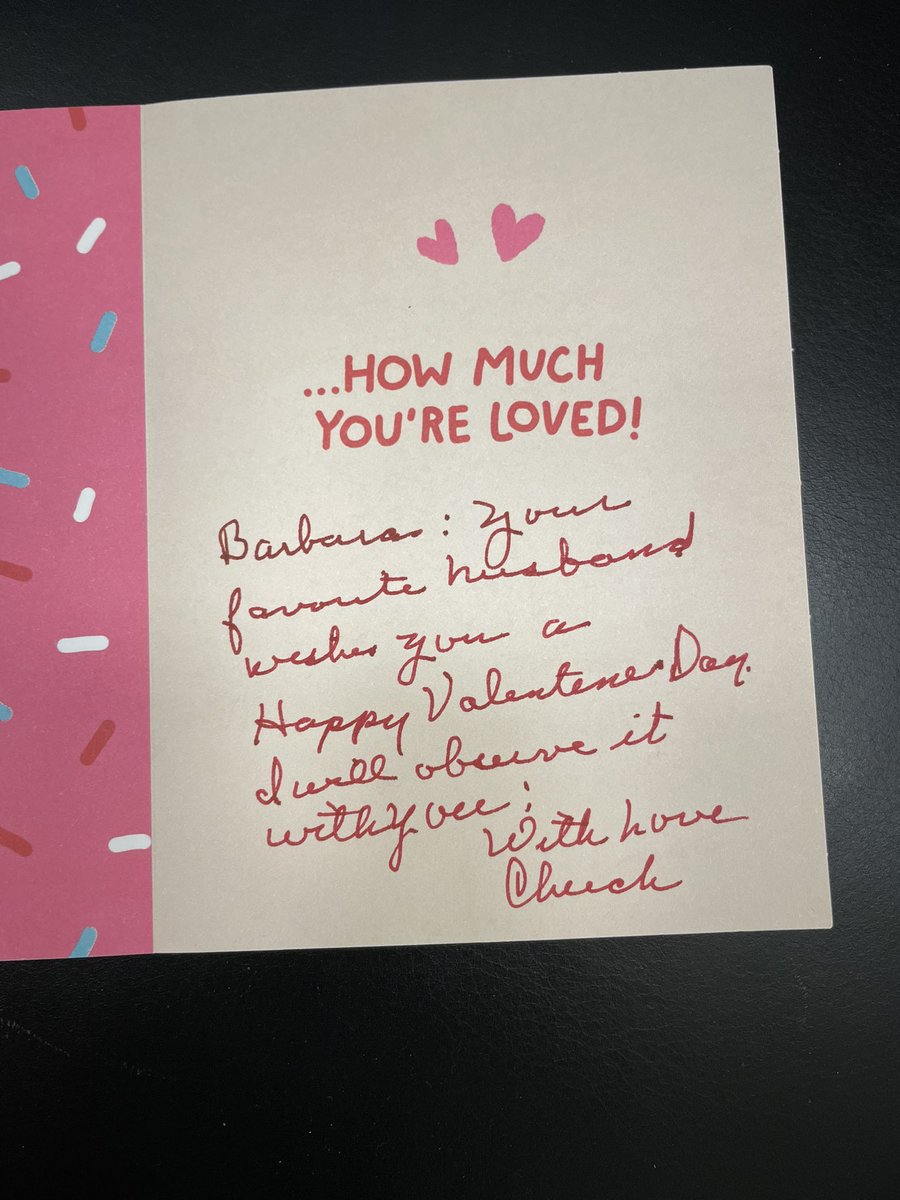 ...HOW MUCH
YOU'RE LOVED!
Barbara: Your
favorite husband
wishes you a
Happy Valentenes Day.
I will observe it
with you!
With Love
Chuck